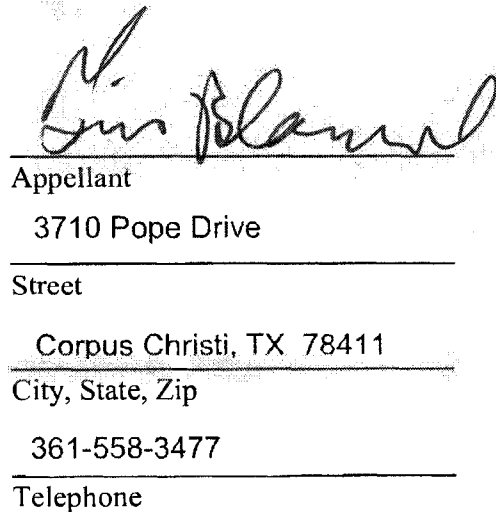 Appellant
3710 Pope Drive
Street
Corpus Christi, TX 78411
City, State, Zip
361-558-3477
Telephone